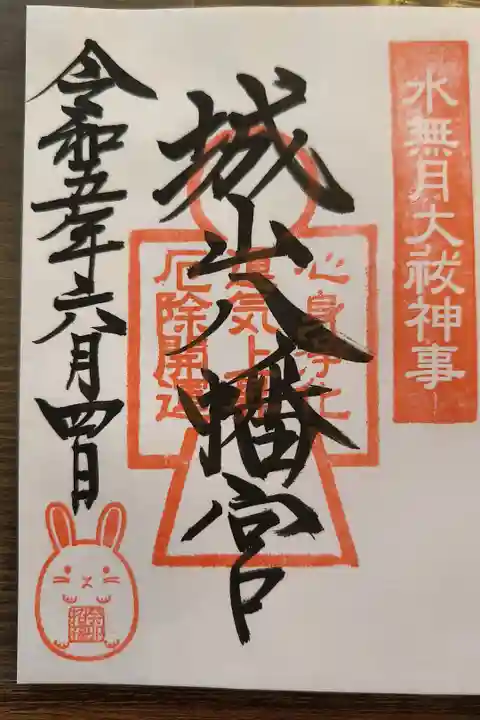 水無月大祓神事
城山八幡宮
心身浄化
運気上昇
厄除開運
令和五年六月四日